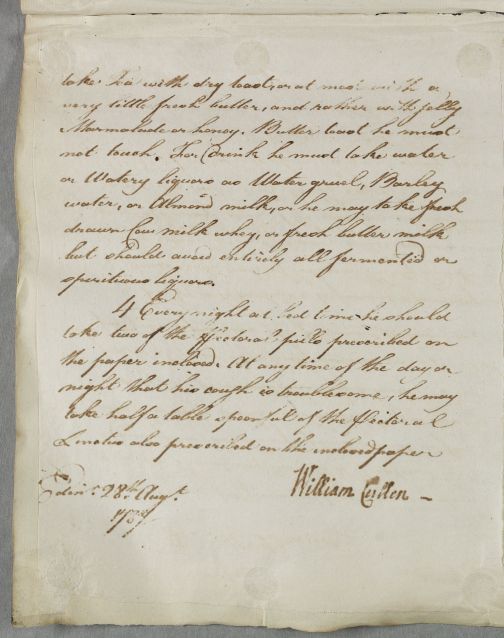 take Tea with dry toast, or at most with a
very little fresh butter, and rather with jelly
Marmalade or honey. Butter toast he must
not touch. For Drink he must take water
or Watery liquors as Water gruel, Barley
water, or Almond milk, or he may take fresh
drawn Cow milk whey, or fresh butter milk
but should avoid entirely all fermented or
spirituous liquors.
4 Every night at bed time he should
take two of the Pectoral pills prescribed on
the paper inclosed. At any time of the day or
night that his cough is troublesome, he may
take half a table spoonful of the Pectoral
Linctus also prescribed on the inclosed paper
Edinr. 28th. Augt. William Cullen